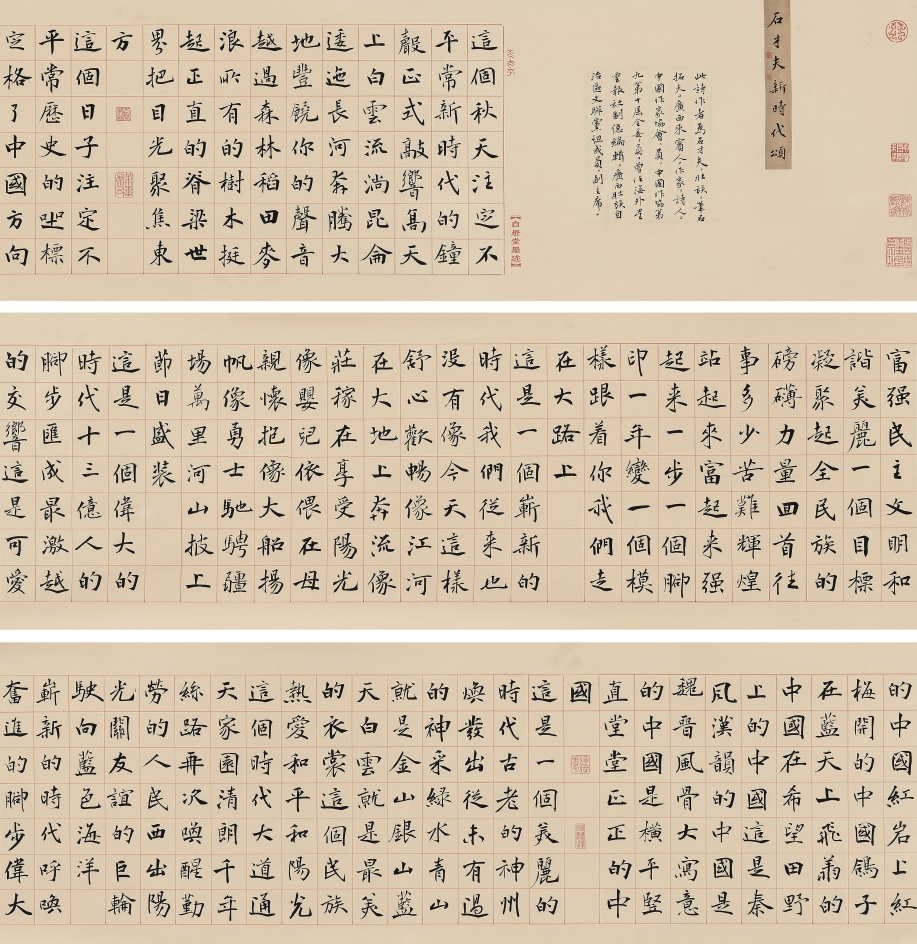 石才夫新時代頌
此詩作者爲石才夫。壯族。筆名
拓夫。廣西來賓人。作家。詩人。
中國作家協會會員。中國作協第
九第十屆全委委員。曾任海外星
雲報社副總編輯。廣西壯族自
治區文聯黨組成員副主席。
這個秋天注定不
平常新時代的鐘
聲正式敲響高天
上白雲流淌昆侖
逶迤長河奔騰大
地豐饒你的聲音
越過森林稻田麥
浪所有的樹木挺
起正直的脊梁世
界把目光聚焦東
方
這個日子注定不
平常歷史的坐標
定格了中國方向
富强民主文明和
諧美麗一個目標
凝聚起全民族的
磅礴力量回首往
事多少苦難輝煌
站起來富起来强
起来一步一個脚
印一年變一個模
樣跟着你我們走
在大路上
這是一個嶄新的
時代我們從来也
没有像今天這樣
舒心歡暢像江河
在大地上奔流像
莊稼在享受陽光
像嬰兒依偎在母
親懷抱像大船揚
帆像勇士馳騁疆
場萬里河山披上
節日盛裝
這是一個偉大的
時代十三億人的
脚步匯成最激越
的交響這是可愛
的中國紅岩上紅
梅開的中國鴿子
在藍天上飛翔的
中國在希望田野
上的中國這是秦
風漢韻的中國是
魏晋風骨大寫意
的中國是横平竪
直堂堂正正的中
國
這是一個美麗的
時代古老的神州
焕發出從未有過
的神采緑水青山
就是金山銀山藍
天白雲就是最美
的衣裳這個民族
熱愛和平和陽光
這個時代大道通
天家園清朗千年
絲路再次唤醒勤
勞的人民西出陽
光關友誼的巨輪
駛向藍色海洋
嶄新的時代呼唤
奮進的脚步偉大